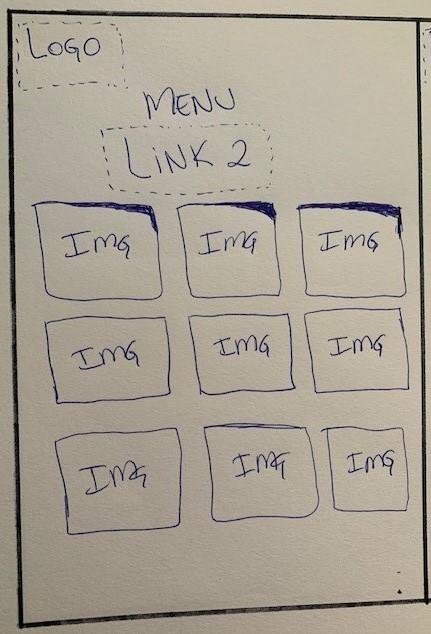 LOGO
MENU
LINK 2
IMG IMG IMG
IMG IMG IMG
IMG IMG IMG